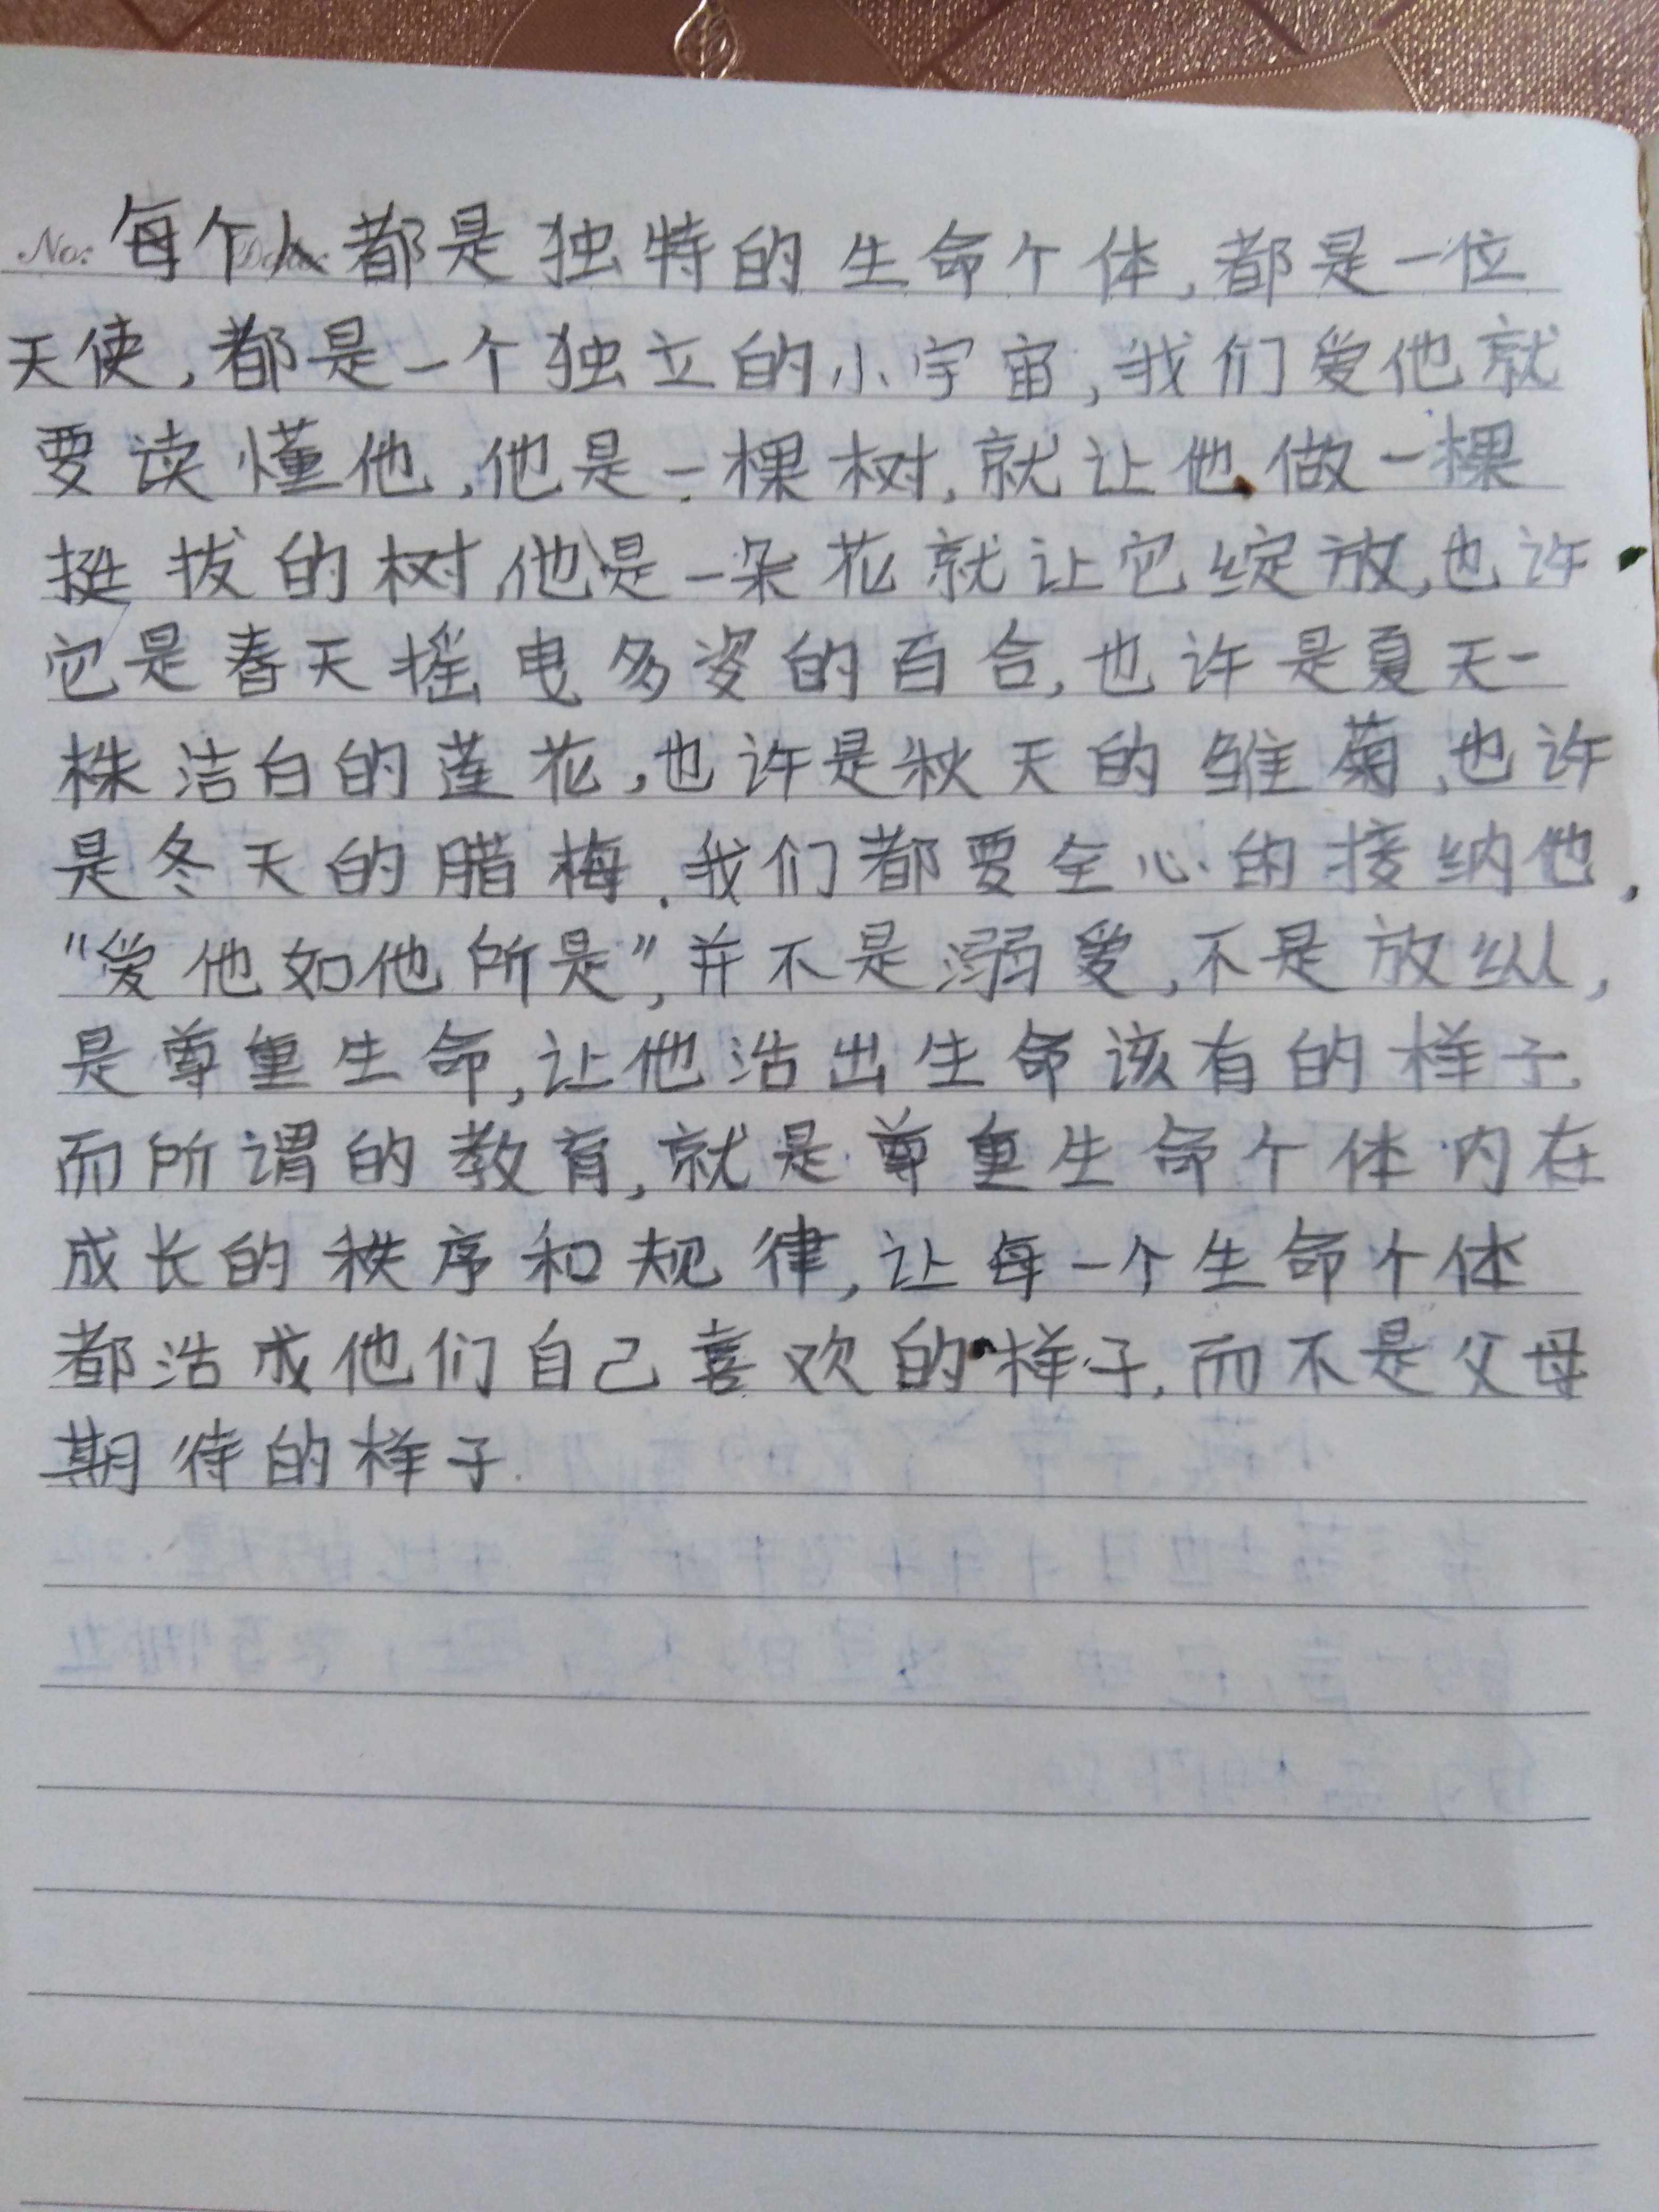 No: 每个人都是独特的生命个体,都是一位
天使,都是一个独立的小宇宙,我们爱他就
要读懂他,他是一棵树,就让他做一棵
挺拔的树,他是一朵花就让它绽放,也许
它是春天摇电多姿的百合,也许是夏天一
株洁白的莲花,也许是秋天的雏菊,也许
是冬天的腊梅.我们都要全心的接纳他,
"爱他如他所是",并不是溺爱,不是放纵,
是尊重生命,让他活出生命该有的样子.
而所谓的教育,就是尊重生命个体内在
成长的秩序和规律,让每一个生命个体
都活成他们自己喜欢的样子,而不是父母
期待的样子.